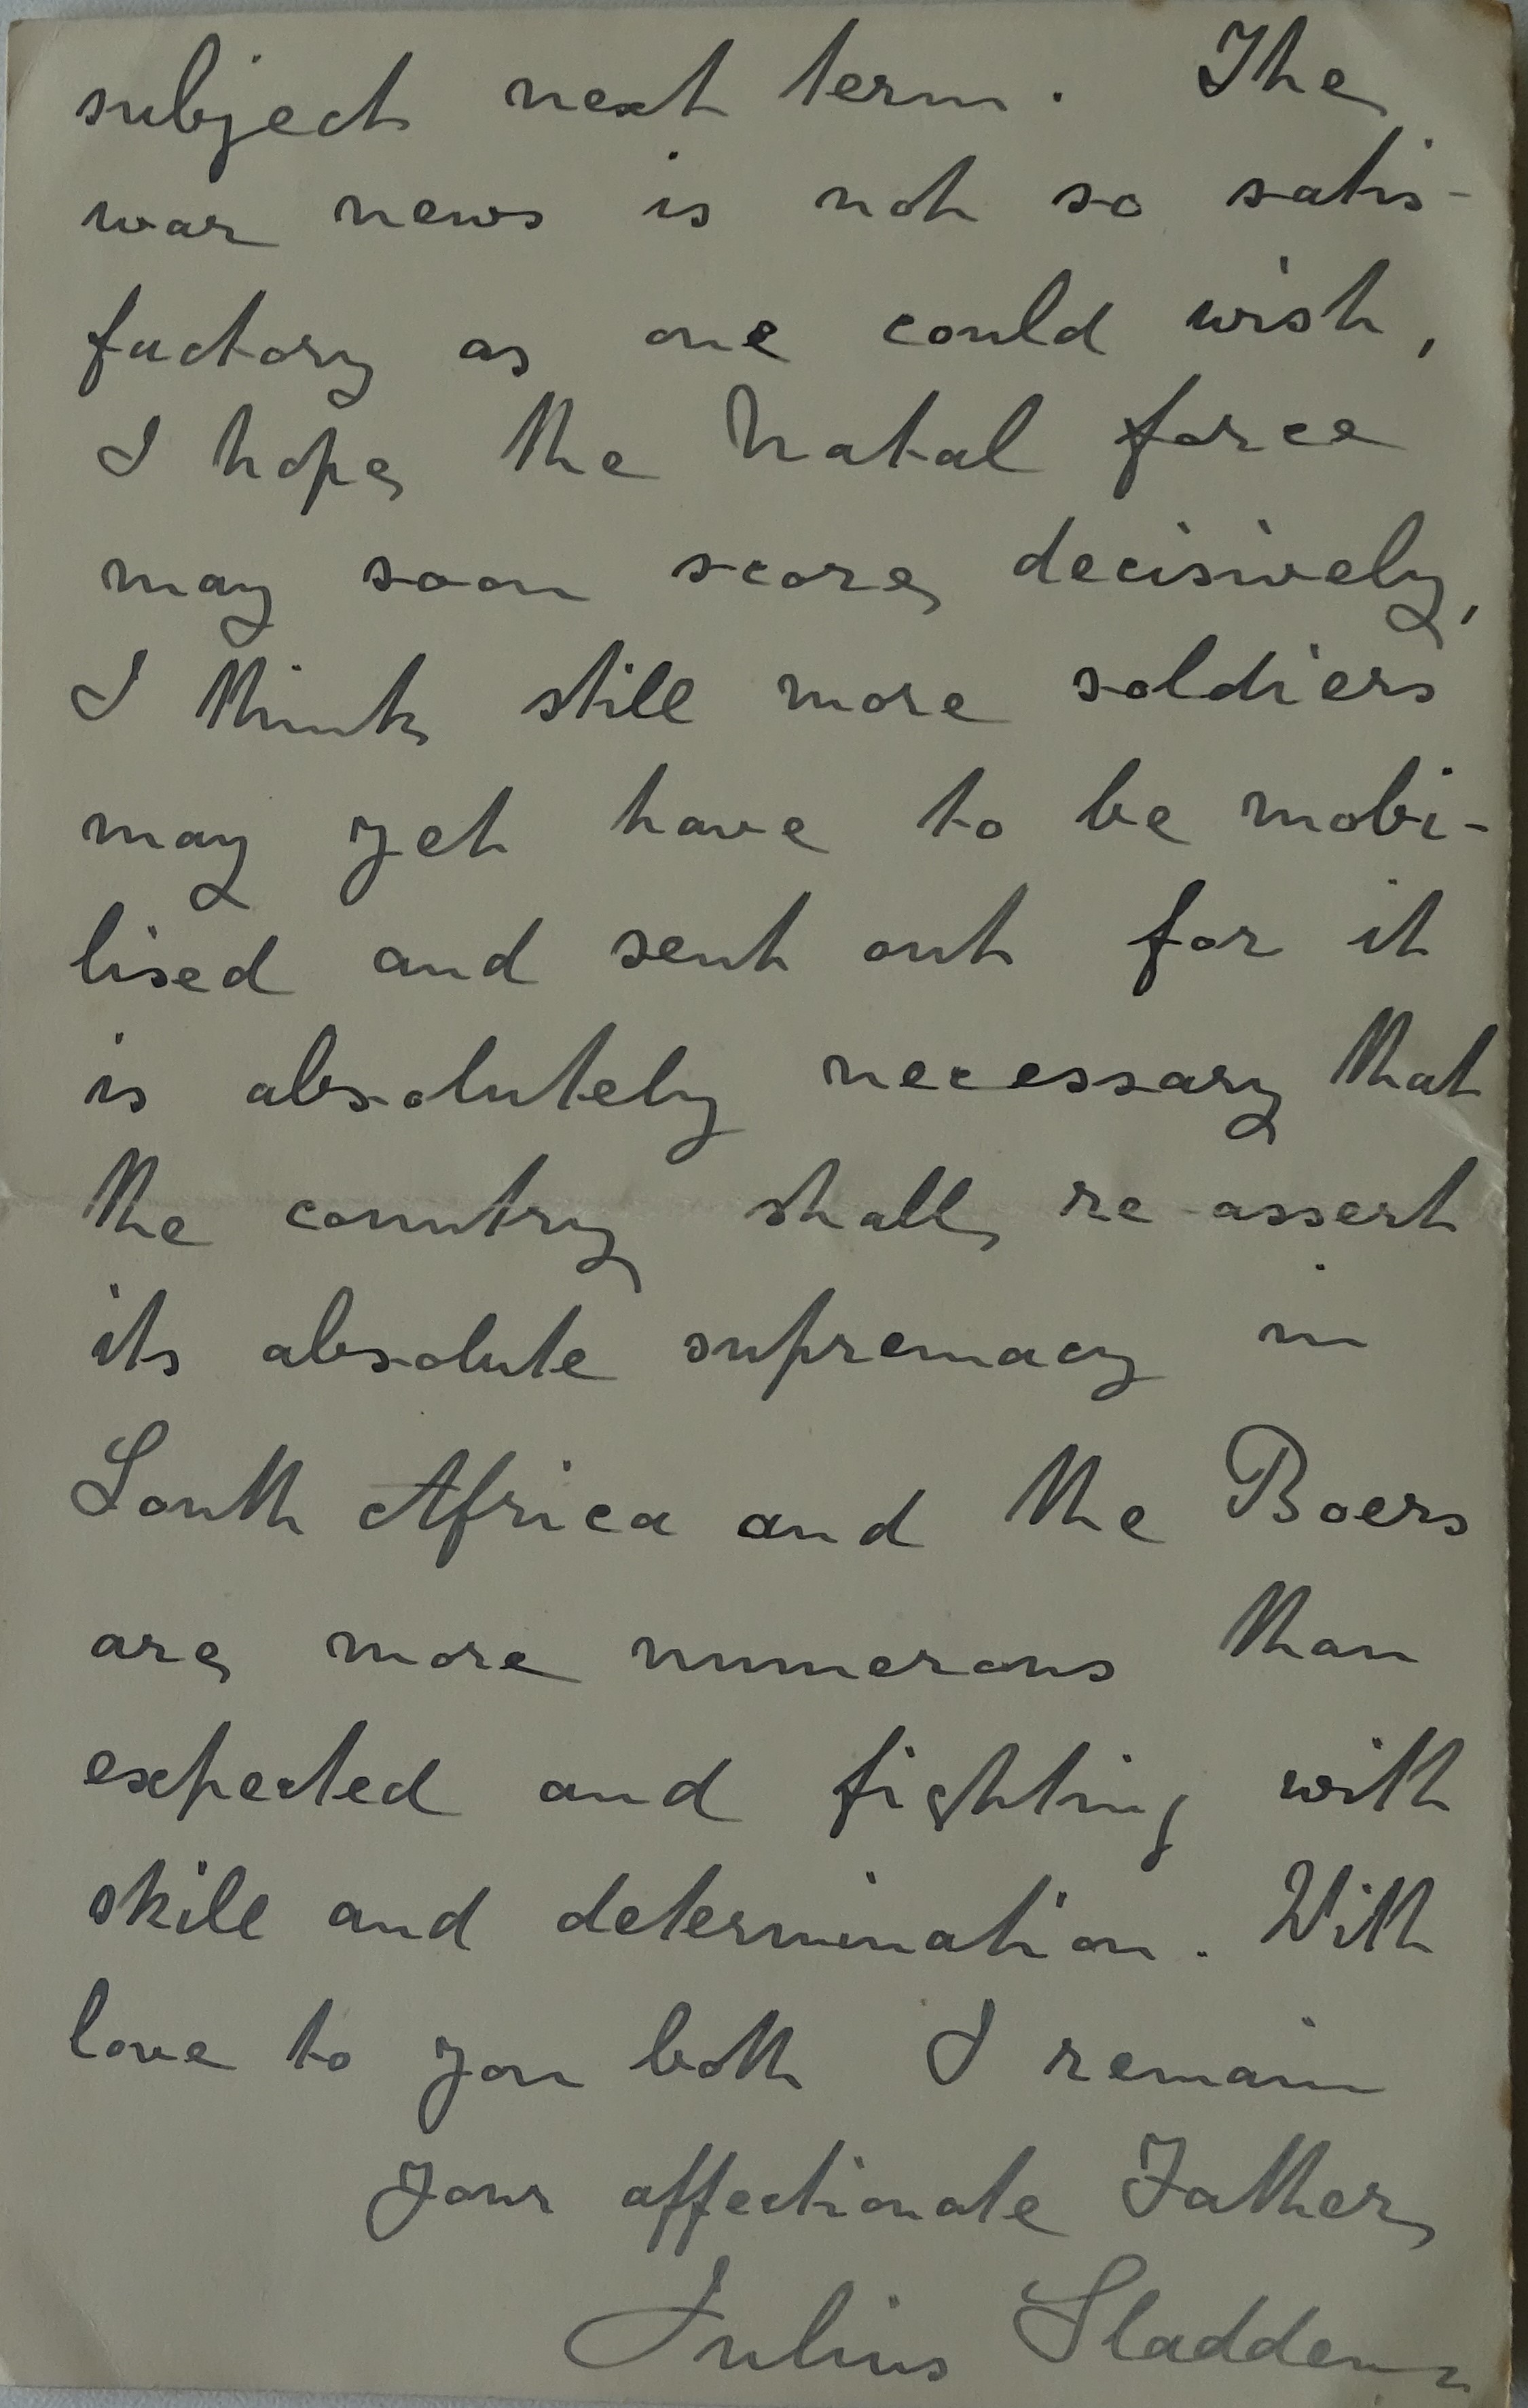 subject next term. The
war news is not so satis-
factory as one could wish,
I hope the Natal force
may soon score decisively,
I think still more soldiers
may yet have to be mobi-
lised and sent out for it
is absolutely necessary that
the country shall re-assert
its absolute supremacy in
South Africa and the Boers
are more numerous than
expected and fighting with
skill and determination. With
love to you both I remain
your affectionate Father
Julius Sladden